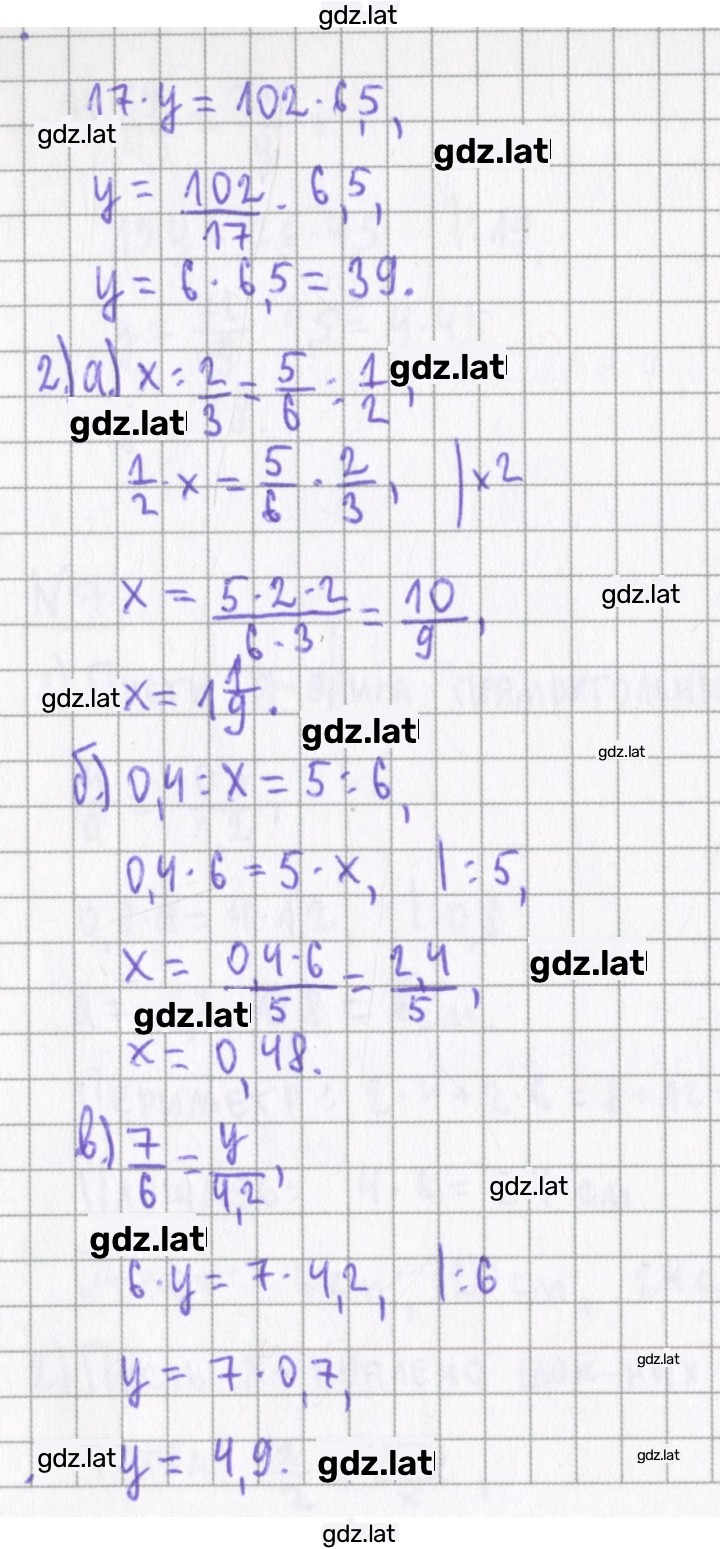 gdz.lat
17·y = 102·6,5,
gdz.lat
gdz.lat
y = 102/17 · 6,5,
y = 6·6,5 = 39.
2) а) x : 2/3 = 5/6 : 1/2,
gdz.lat
gdz.lat
1/2 · x = 5/6 · 2/3, |×2
x = 5·2·2/6·3 = 10/9,
gdz.lat
gdz.lat
x = 1 1/9.
gdz.lat
gdz.lat
б) 0,4 : x = 5 : 6,
0,4·6 = 5·x, | : 5,
x = 0,4·6/5 = 2,4/5,
gdz.lat
gdz.lat
x = 0,48.
в) 7/6 = y/4,2,
gdz.lat
gdz.lat
6·y = 7·4,2, | : 6
y = 7·0,7,
gdz.lat
gdz.lat
y = 4,9.
gdz.lat
gdz.lat
gdz.lat